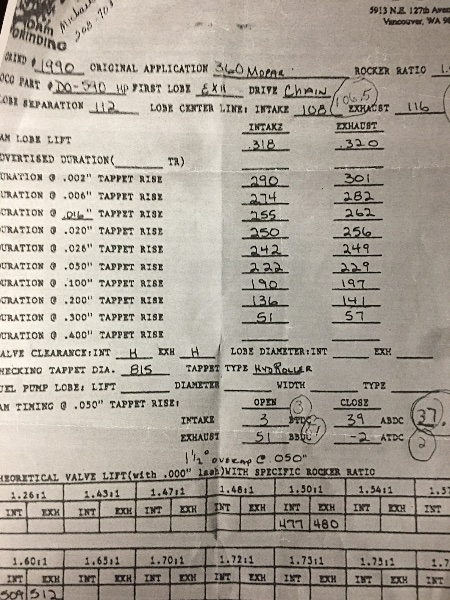 5913 N.E. 127th Aven
Vancouver, WA 98
CAM
GRINDING
Michael
208 70
GRIND # 1990 ORIGINAL APPLICATION 360 MOPAR ROCKER RATIO 1.
OCO PART # DO-590 HP FIRST LOBE EXH DRIVE CHAIN
LOBE SEPARATION 112 LOBE CENTER LINE: INTAKE 108 106.5 EXHAUST 116
INTAKE EXHAUST
AM LOBE LIFT .318 .320
DVERTISED DURATION( TR)
URATION @ .002" TAPPET RISE 290 301
URATION @ .006" TAPPET RISE 274 282
URATION @ .016" TAPPET RISE 255 262
URATION @ .020" TAPPET RISE 250 256
URATION @ .026" TAPPET RISE 242 249
URATION @ .050" TAPPET RISE 222 229
URATION @ .100" TAPPET RISE 190 197
URATION @ .200" TAPPET RISE 136 141
URATION @ .300" TAPPET RISE 51 57
URATION @ .400" TAPPET RISE
ALVE CLEARANCE:INT H EXH H LOBE DIAMETER:INT EXH
HECKING TAPPET DIA. 815 TAPPET TYPE HYD ROLLER
UEL PUMP LOBE: LIFT DIAMETER WIDTH TYPE
AM TIMING @ .050" TAPPET RISE: OPEN CLOSE
INTAKE 3 3 BTDC 39 ABDC 37.
EXHAUST 51 BBDC -2 ATDC 2
1 1/2° OVERLAP @ .050"
HEORETICAL VALVE LIFT(with .000" lash)WITH SPECIFIC ROCKER RATIO
1.26:1 1.43:1 1.47:1 1.48:1 1.50:1 1.54:1 1.57
INT EXH INT EXH INT EXH INT EXH INT EXH INT EXH INT
477 480
1.60:1 1.65:1 1.70:1 1.72:1 1.73:1 1.75:1 1.7
INT EXH INT EXH INT EXH INT EXH INT EXH INT EXH INT
509 512